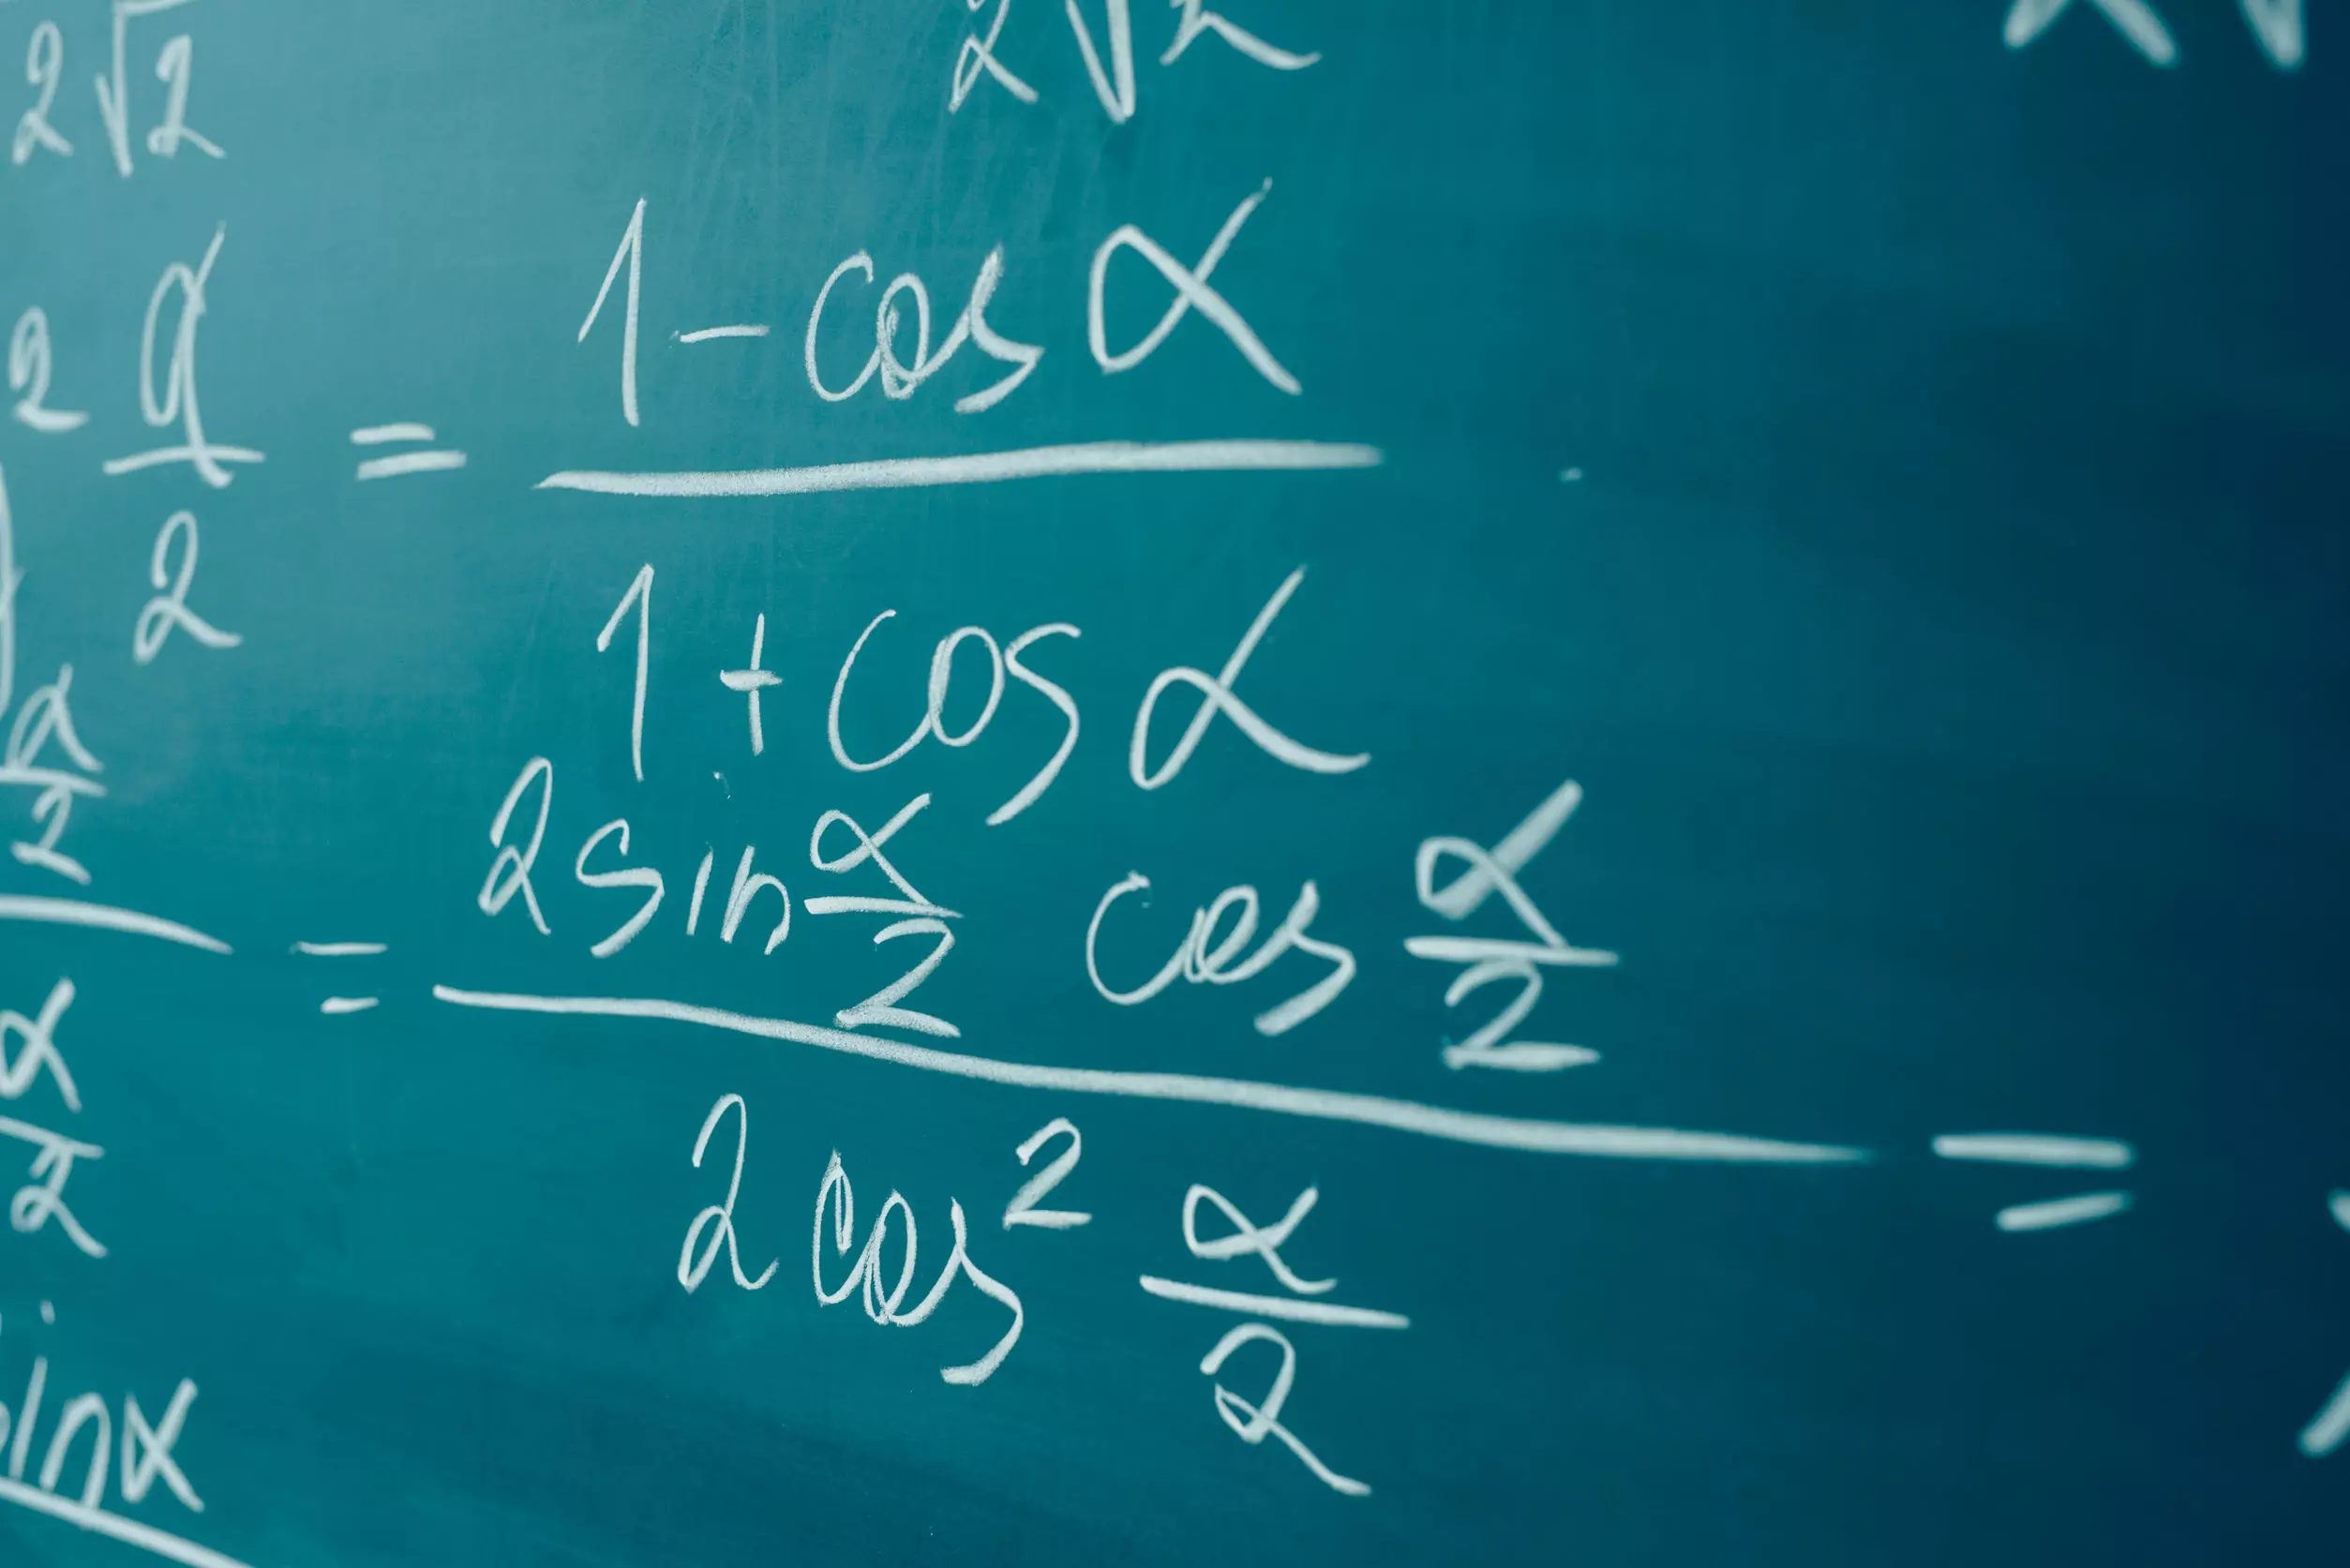 2√2 2√2
2 α/2 = (1 - cos α)/(1 + cos α)
α/2 / α/2 = (2 sin α/2 cos α/2)/(2 cos² α/2) =
sin α